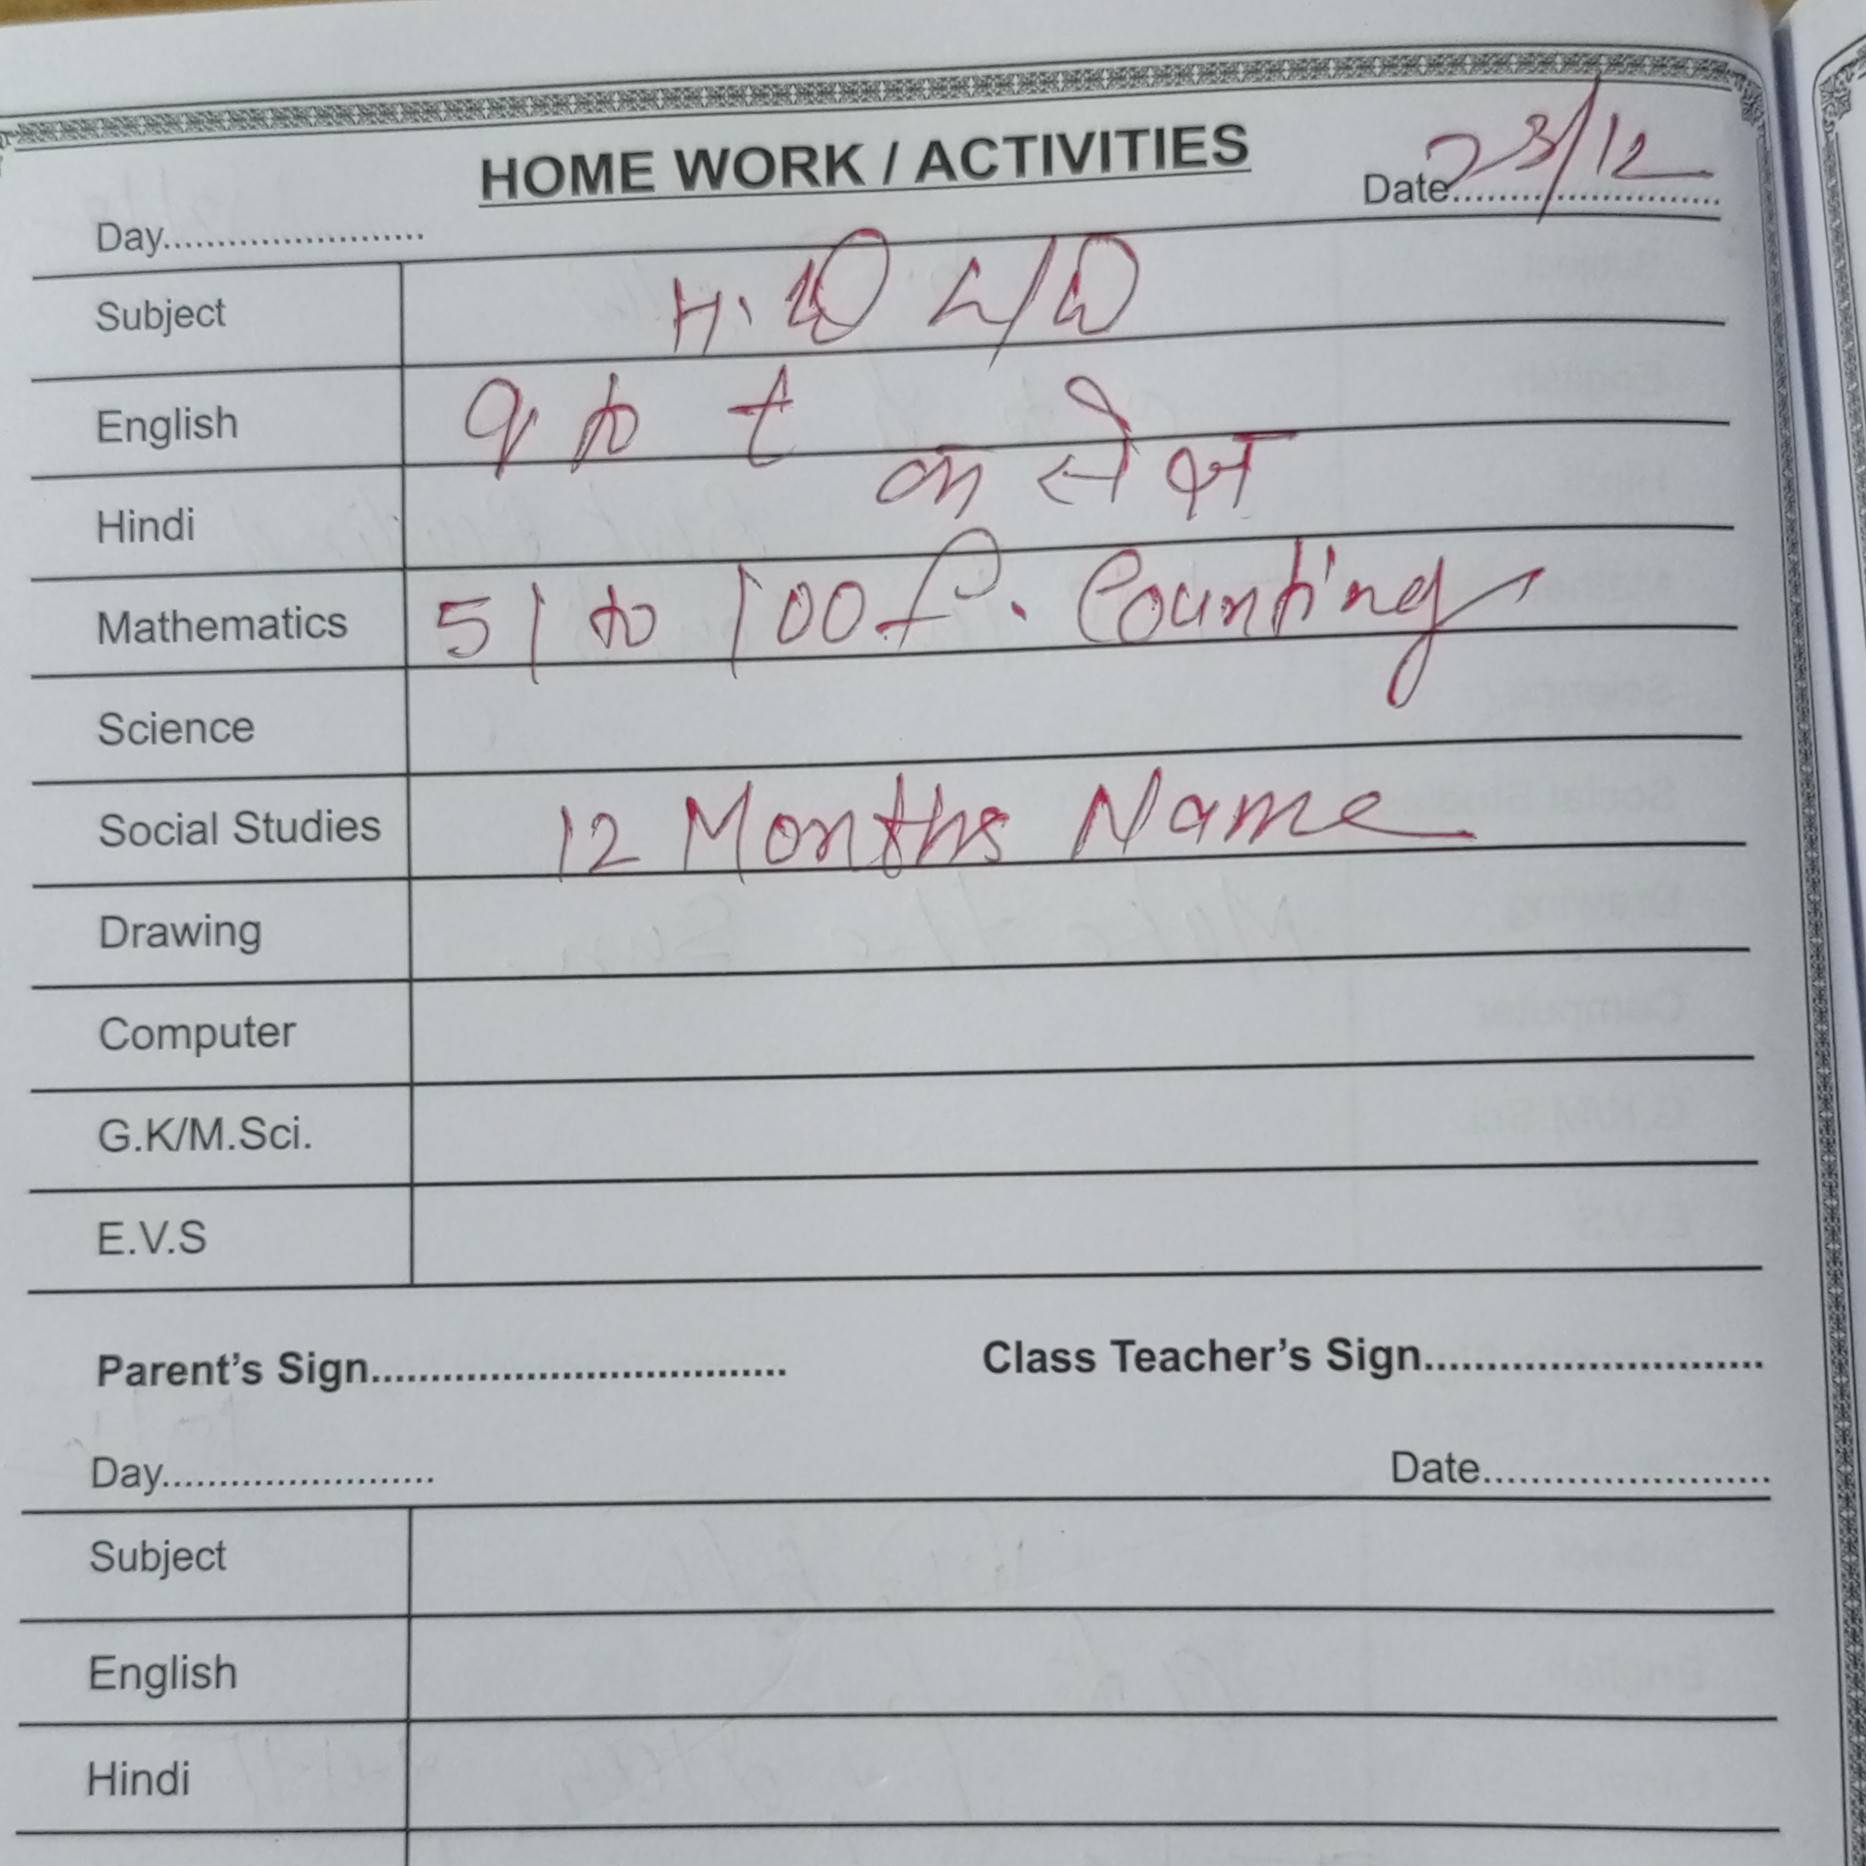 HOME WORK / ACTIVITIES
Day........................ Date 23/12
Subject H.W L/W
English q to t
Hindi क से ज्ञ
Mathematics 51 to 100 f. Counting
Science
Social Studies 12 Months Name
Drawing
Computer
G.K/M.Sci.
E.V.S
Parent's Sign.................................. Class Teacher's Sign............................
Day........................ Date........................
Subject
English
Hindi